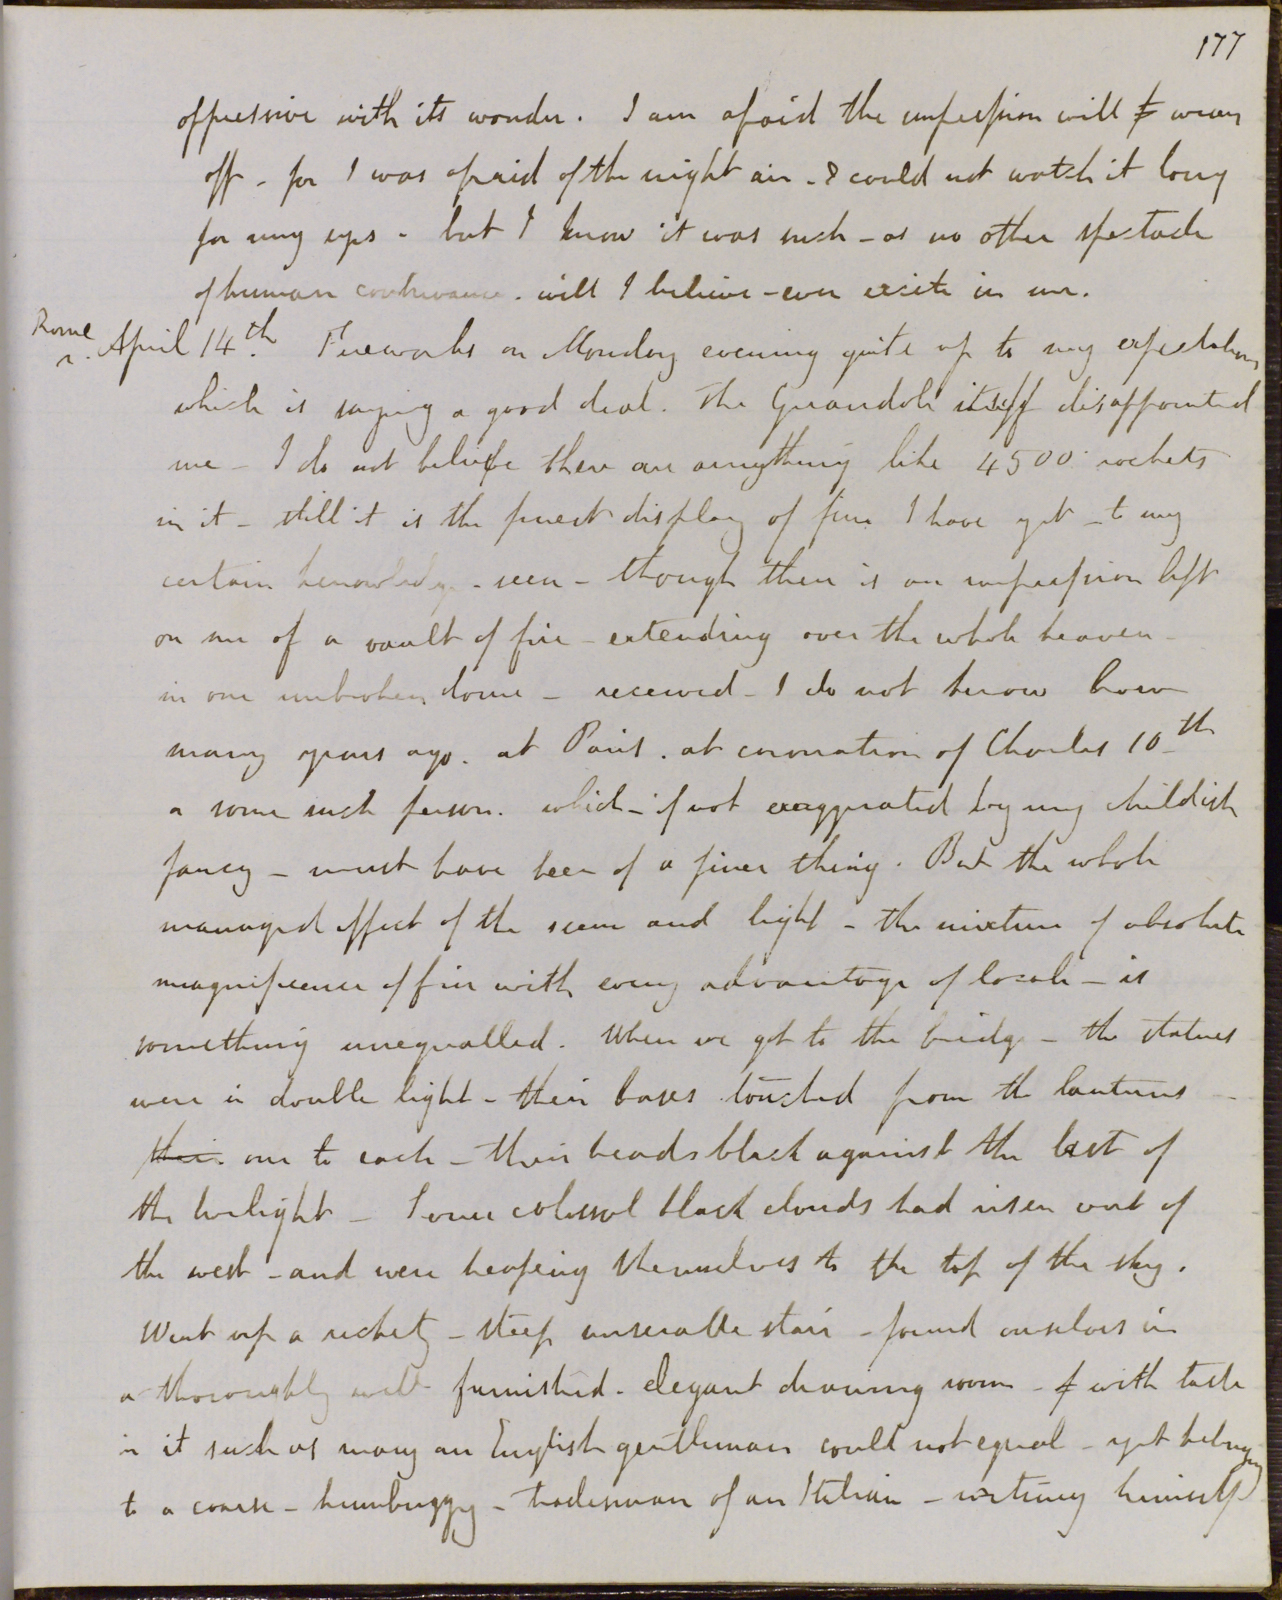 177
oppressive with its wonder. I am afraid the impression will wear
off - for I was afraid of the night air - I could not watch it long
for my eyes - but I know it was such - as no other spectacle
of human contrivance. will I believe - ever excite in me.
Rome
April 14th. Fireworks on Monday evening quite up to my expectations
which is saying a good deal. The Girandole itself disappointed
me - I do not believe there are anything like 4500 rockets
in it - still it is the finest display of fire I have yet - to my
certain knowledge - seen - though there is an impression left
on me of a vault of fire - extending over the whole heaven -
in one unbroken dome - received - I do not know how
many years ago. at Paris. at coronation of Charles 10th
or some such person. which - if not exaggerated by my childish
fancy - must have been of a finer thing. But the whole
managed effect of the scene and light - the mixture of absolute
magnificence of fire with every advantage of locale - is
something unequalled. When we got to the bridge - the statues
were in double light - their bases touched from the lanterns -
their one to each - their heads black against the last of
the twilight - Some colossal black clouds had risen out of
the west - and were heaping themselves to the top of the sky.
Went up a rickety - steep miserable stair - found ourselves in
a thoroughly well furnished - elegant drawing room - with taste
in it such as many an English gentleman could not equal - yet belonging
to a coarse - humbuggy - tradesman of an Italian - writing himself